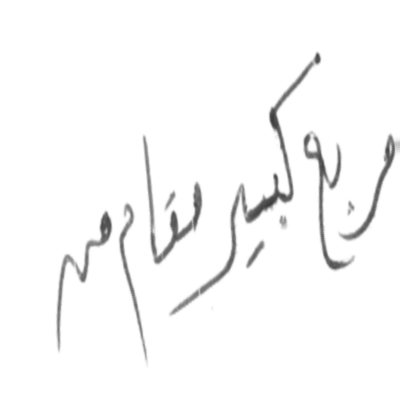 مربع كبير مقام من